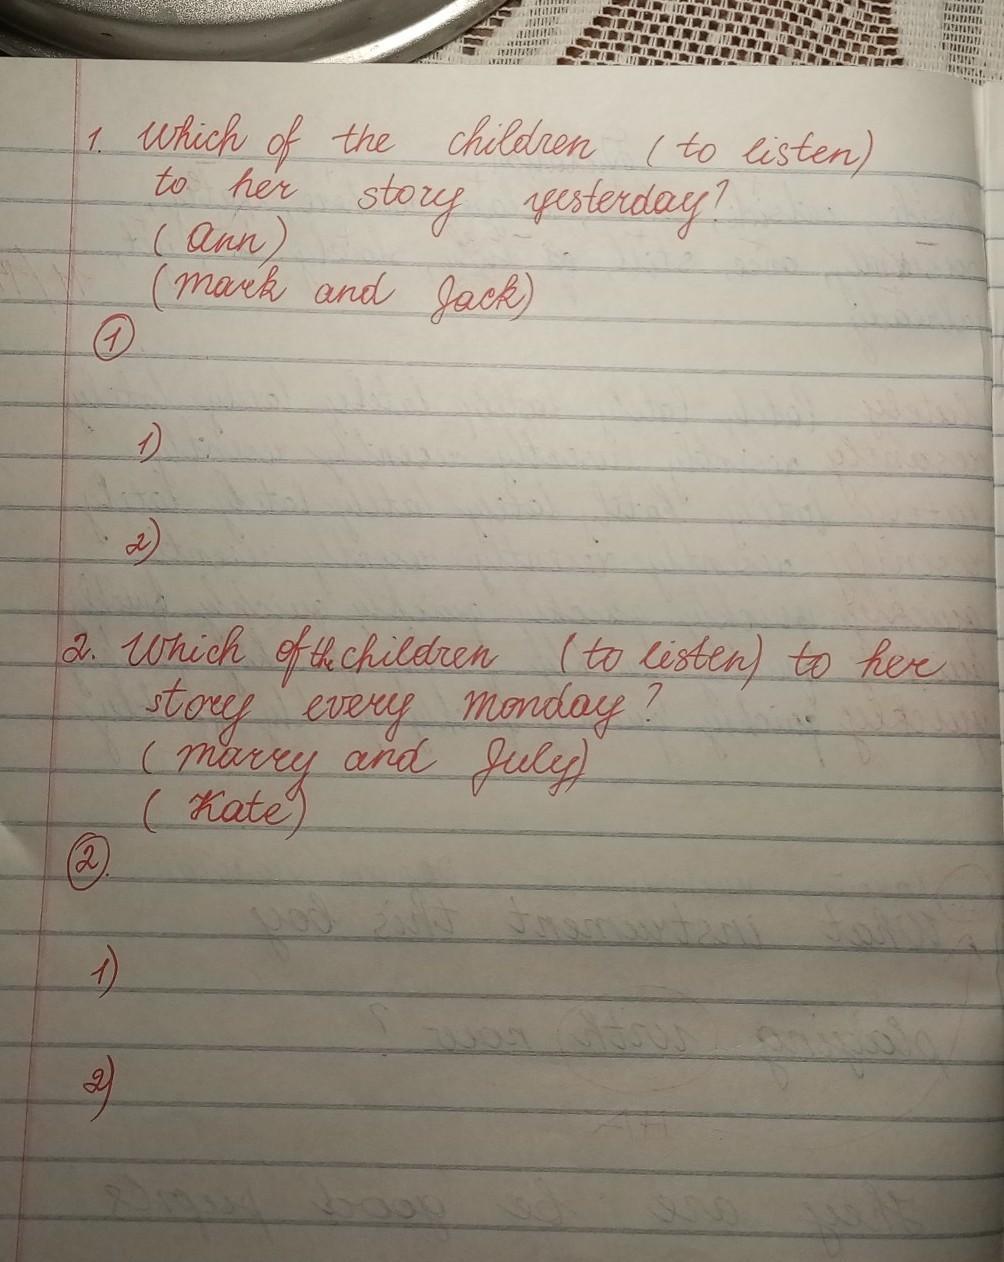 1. Which of the children (to listen)
to her story yesterday?
(Ann)
(Mark and Jack)
1
1)
2)
2. Which of the children (to listen) to her
story every Monday?
(Marry and July)
(Kate)
2.
1)
2)